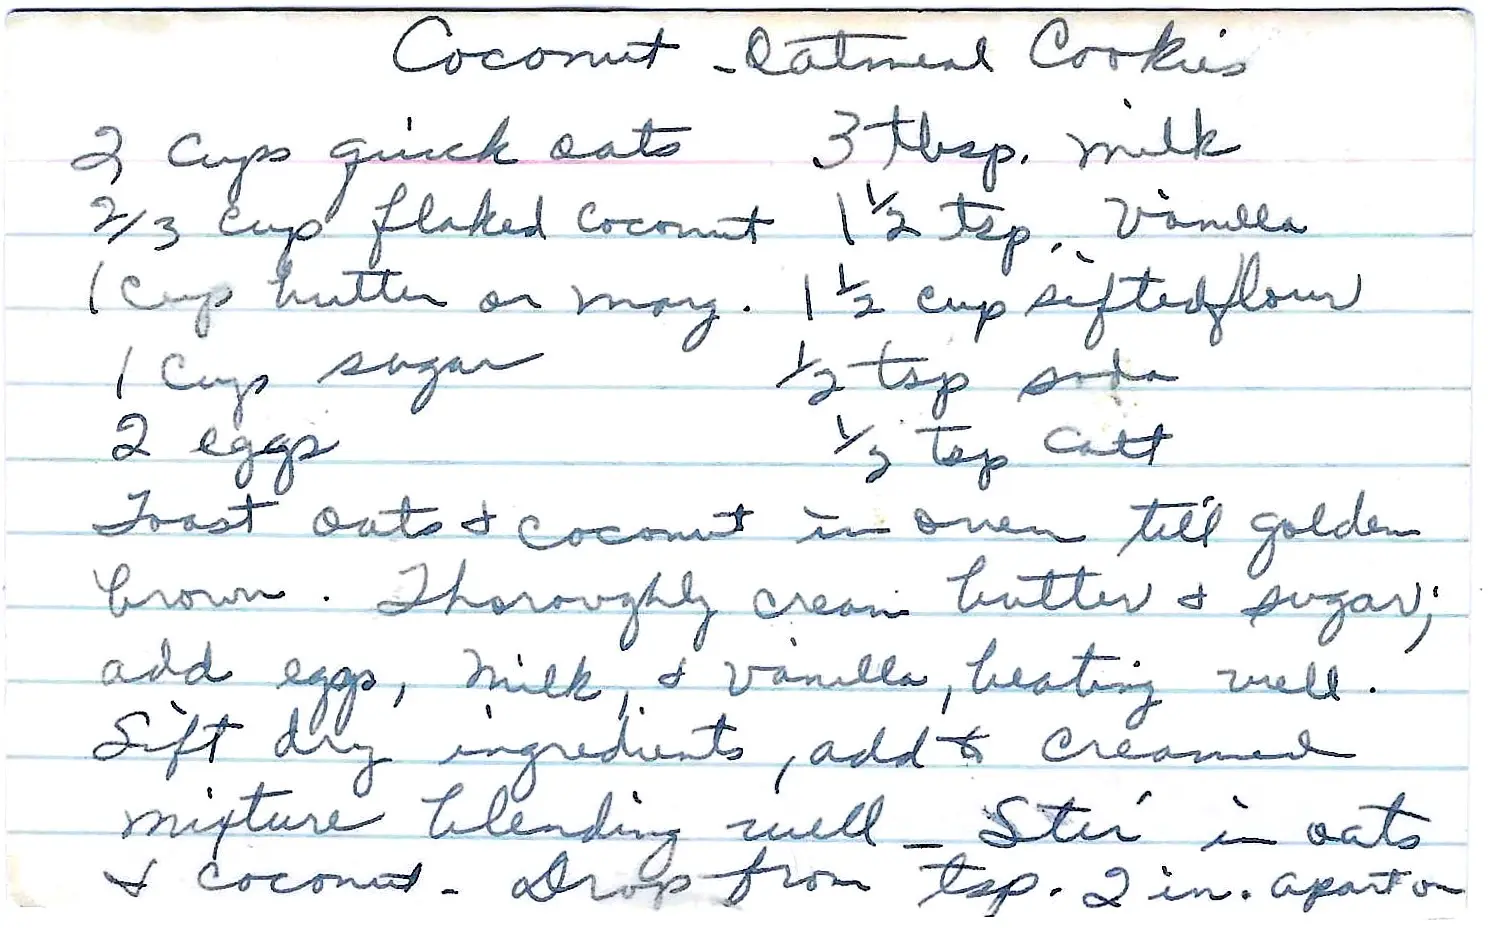 Coconut - Oatmeal Cookies
2 cups quick oats 3 tbsp. milk
2/3 cup flaked coconut 1 1/2 tsp. vanilla
1 cup butter or marg. 1 1/2 cup sifted flour
1 cup sugar 1/2 tsp soda
2 eggs 1/2 tsp
Toast oats & coconut in oven till golden
brown. Thoroughly cream butter & sugar;
add eggs, milk, & vanilla, beating well.
Sift dry ingredients, add to creamed
mixture blending well - Stir in oats
& coconut - Drop from tsp. 2 in. apart on